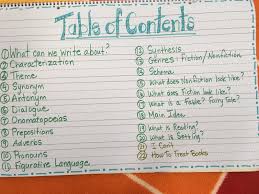 Table of Contents
① What can we write about?
② Characterization
③ Theme
④ Synonym
⑤ Antonym
⑥ Dialogue
⑦ Onomatopoeas
⑧ Prepositions
⑨ Adverbs
⑩ Pronouns
⑪ Figurative Language
⑫ Synthesis
⑬ Genres: Fiction/Nonfiction
⑭ Schema
⑮ What does Nonfiction look like?
⑯ What does Fiction look like?
⑰ What is a Fable? Fairy Tale?
⑱ Main Idea
⑲ What is Reading?
⑳ What is Setting?
㉑ I Can't
㉒ How To Treat Books